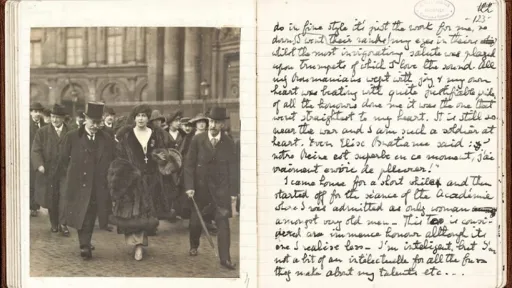 122
123
do in fine style it's just the work for me, so
down I went their ranks my eyes in theirs
whilst the most invigorating salute was played
upon trumpets of which I love the sound all
my Roumanians wept with joy & my own
heart was beating with quite justifiable pride
of all the honours done me it was the one that
went straightest to my heart. It is still so
near the war and I am such a soldier at
heart. Even Elise Bratianu said: "
notre Reine est superbe en ce moment, j'ai
vraiment envie de pleurer!"
I came home for a short while and then
started off for the séance of the Académie
where I was admitted as only woman
amongst very old men – This is consi-
dered an immense honour although it is
one I realise less – I'm intelligent, but I'm
not a bit of an intellectuelle for all the fuss
they make about my talents etc. . . .